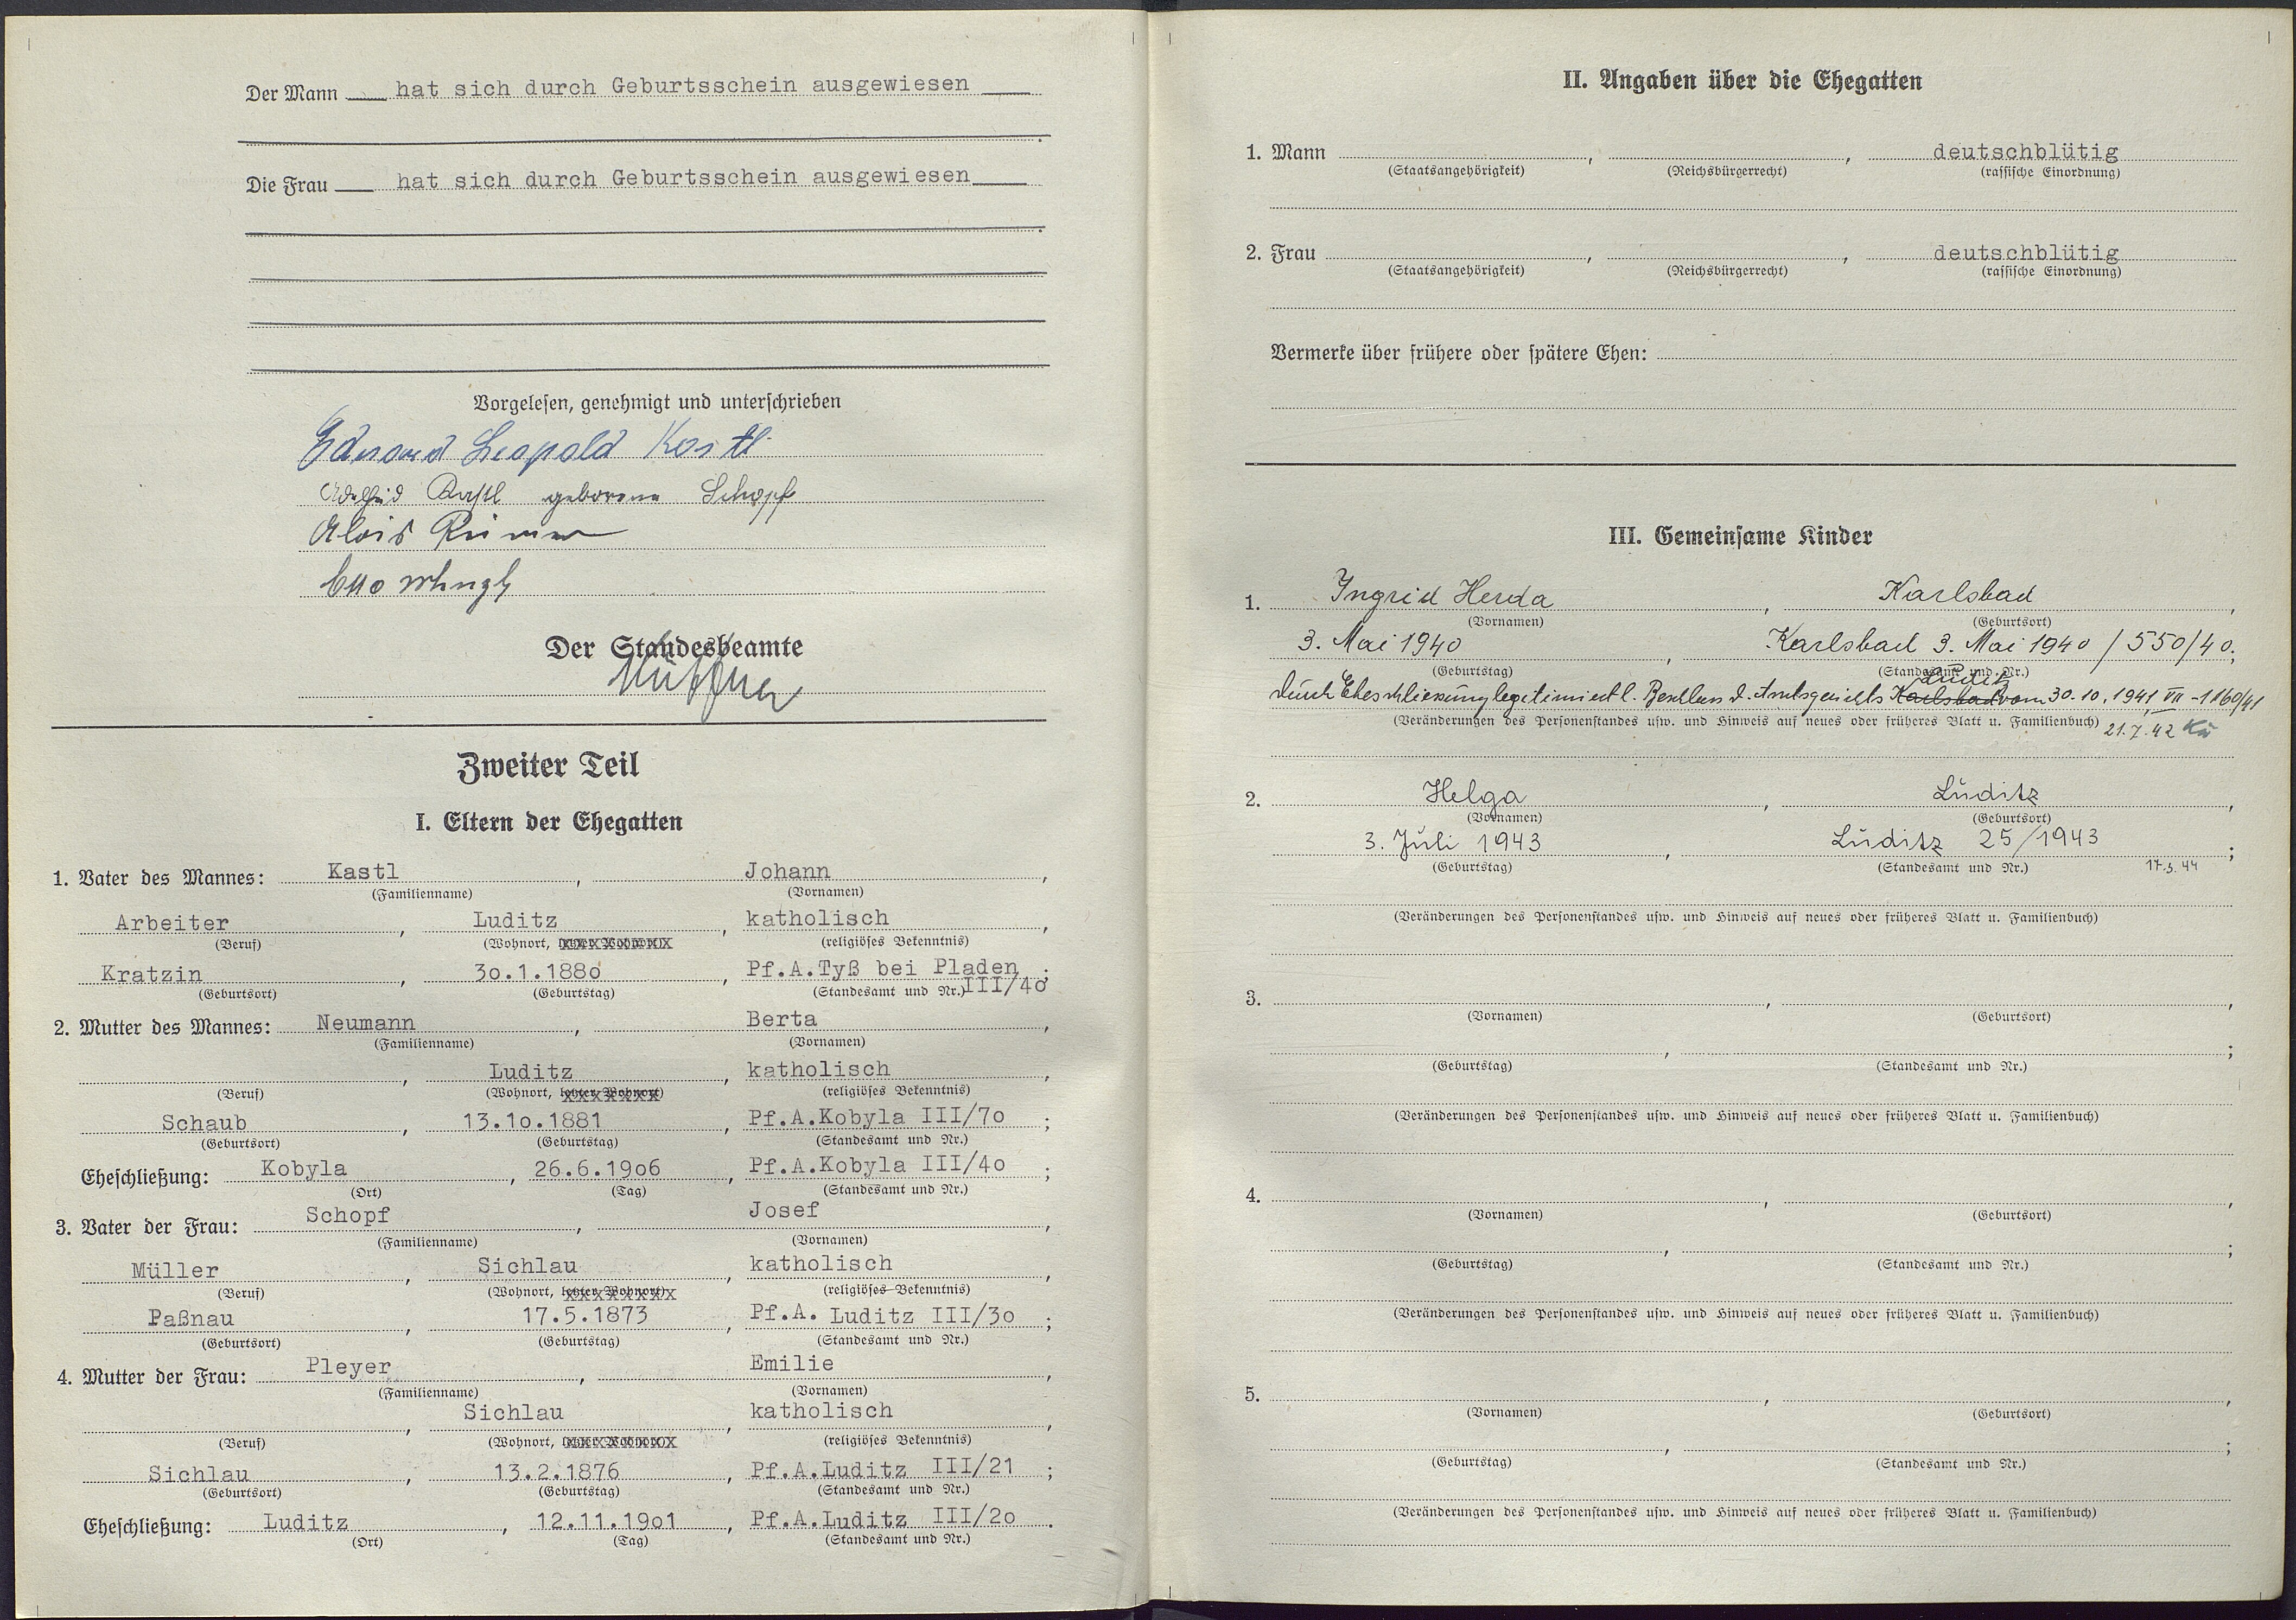 Der Mann hat sich durch Geburtsschein ausgewiesen
.
Die Frau hat sich durch Geburtsschein ausgewiesen
.
Vorgelesen, genehmigt und unterschrieben
Eduard Leopold Kastl
Kastl geborene Schopf
Alois
Otto
Der Standesbeamte
Zweiter Teil
I. Eltern der Ehegatten
1. Vater des Mannes: Kastl, Johann,
(Familienname) (Vornamen)
Arbeiter, Luditz, katholisch,
(Beruf) (Wohnort, letzter Wohnort) (religiöses Bekenntnis)
Kratzin, 3o.1.188o, Pf.A.Tyß bei Pladen;
(Geburtsort) (Geburtstag) (Standesamt und Nr.) III/4o
2. Mutter des Mannes: Neumann, Berta,
(Familienname) (Vornamen)
, Luditz, katholisch,
(Beruf) (Wohnort, letzter Wohnort) (religiöses Bekenntnis)
Schaub, 13.1o.1881, Pf.A.Kobyla III/7o;
(Geburtsort) (Geburtstag) (Standesamt und Nr.)
Eheschließung: Kobyla, 26.6.19o6, Pf.A.Kobyla III/4o;
(Ort) (Tag) (Standesamt und Nr.)
3. Vater der Frau: Schopf, Josef,
(Familienname) (Vornamen)
Müller, Sichlau, katholisch,
(Beruf) (Wohnort, letzter Wohnort) (religiöses Bekenntnis)
Paßnau, 17.5.1873, Pf.A. Luditz III/3o;
(Geburtsort) (Geburtstag) (Standesamt und Nr.)
4. Mutter der Frau: Pleyer, Emilie,
(Familienname) (Vornamen)
, Sichlau, katholisch,
(Beruf) (Wohnort, letzter Wohnort) (religiöses Bekenntnis)
Sichlau, 13.2.1876, Pf.A.Luditz III/21;
(Geburtsort) (Geburtstag) (Standesamt und Nr.)
Eheschließung: Luditz, 12.11.19o1, Pf.A.Luditz III/2o.
(Ort) (Tag) (Standesamt und Nr.)
II. Angaben über die Ehegatten
1. Mann , , deutschblütig
(Staatsangehörigkeit) (Reichsbürgerrecht) (rassische Einordnung)
2. Frau , , deutschblütig
(Staatsangehörigkeit) (Reichsbürgerrecht) (rassische Einordnung)
Vermerke über frühere oder spätere Ehen:
III. Gemeinsame Kinder
1. Ingrid Herda, Karlsbad,
(Vornamen) (Geburtsort)
3. Mai 1940, Karlsbad 3. Mai 1940 / 550/40;
(Geburtstag) (Standesamt und Nr.)
Luditz
durch Eheschliesung legitimiert l. Beschluss d. Amtsgerichts Karlsbad vom 30.10.1941 VII-1160/41
(Veränderungen des Personenstandes usw. und Hinweis auf neues oder früheres Blatt u. Familienbuch) 21.7.42
2. Helga, Luditz,
(Vornamen) (Geburtsort)
3. Juli 1943, Luditz 25/1943;
(Geburtstag) (Standesamt und Nr.) 17.3.44
(Veränderungen des Personenstandes usw. und Hinweis auf neues oder früheres Blatt u. Familienbuch)
3. , ,
(Vornamen) (Geburtsort)
, ;
(Geburtstag) (Standesamt und Nr.)
(Veränderungen des Personenstandes usw. und Hinweis auf neues oder früheres Blatt u. Familienbuch)
4. , ,
(Vornamen) (Geburtsort)
, ;
(Geburtstag) (Standesamt und Nr.)
(Veränderungen des Personenstandes usw. und Hinweis auf neues oder früheres Blatt u. Familienbuch)
5. , ,
(Vornamen) (Geburtsort)
, ;
(Geburtstag) (Standesamt und Nr.)
(Veränderungen des Personenstandes usw. und Hinweis auf neues oder früheres Blatt u. Familienbuch)